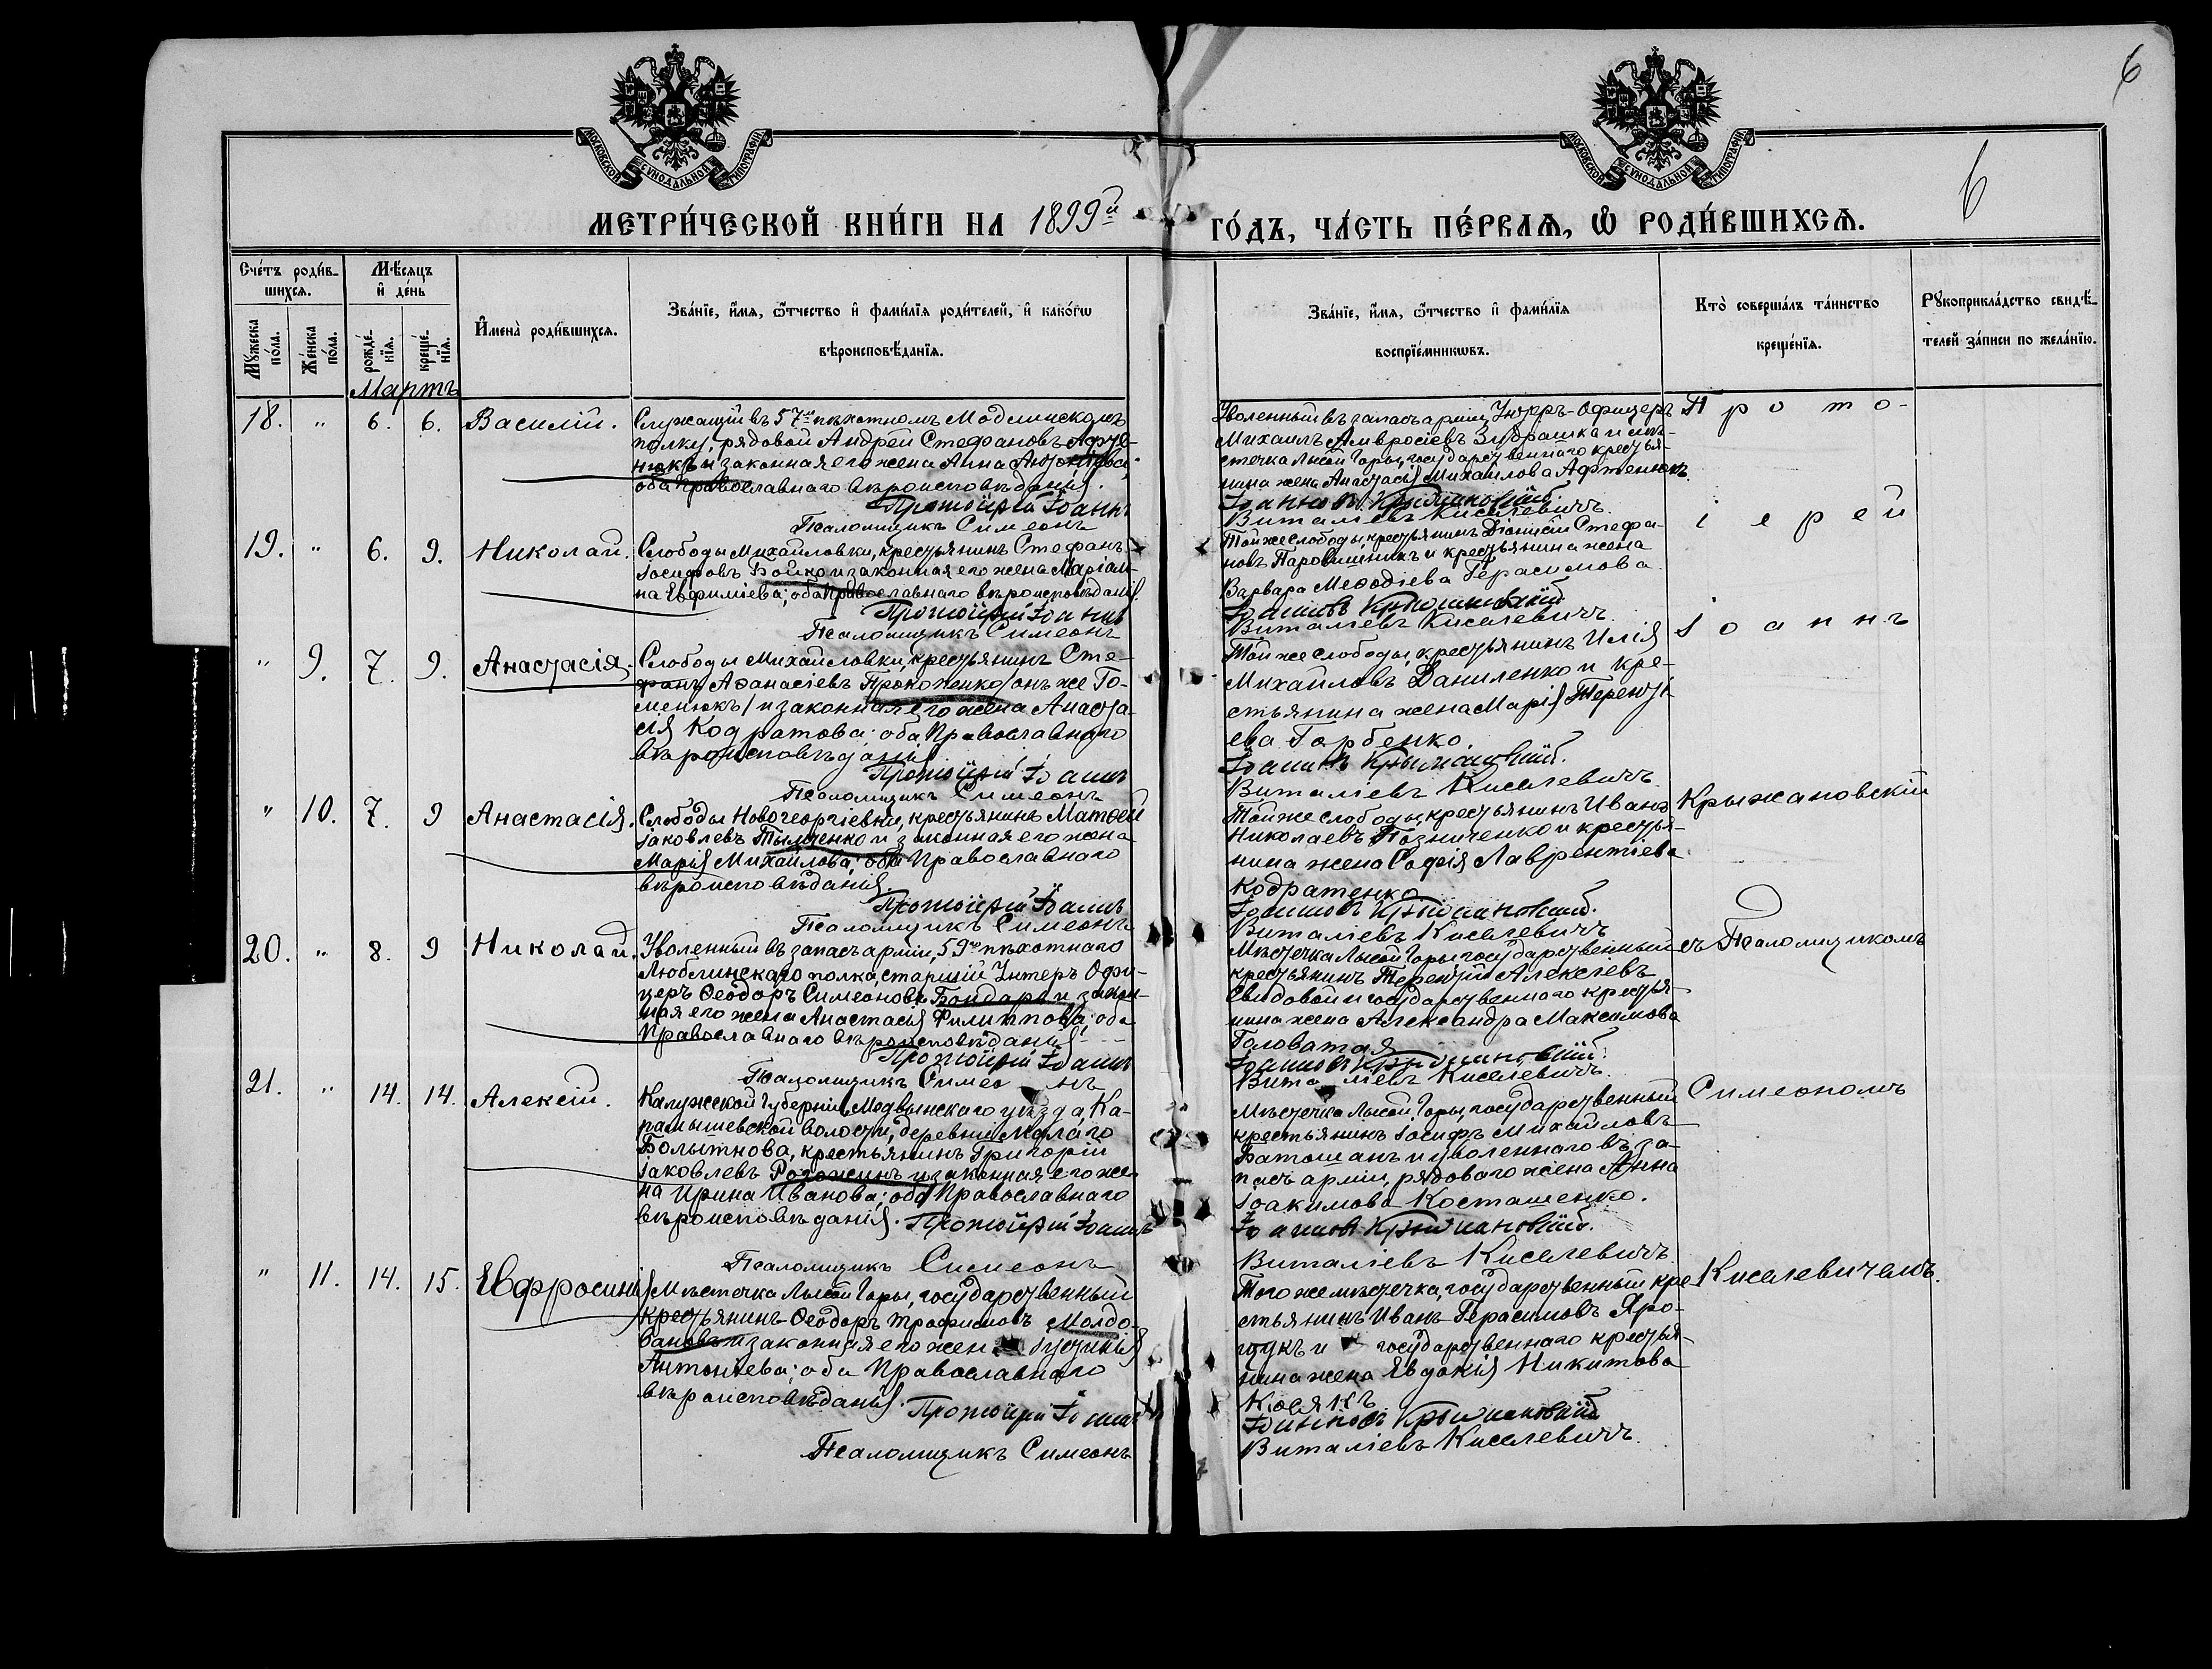 6
МОСКОВСКОЙ СѴНОДАЛЬНОЙ ТИПОГРАФІИ
МОСКОВСКОЙ СѴНОДАЛЬНОЙ ТИПОГРАФІИ
6
МЕТРИ́ЧЕСКОЙ КНИ́ГИ НА 1899й
ГО́ДЪ, ЧА́СТЬ ПЕ́РВАѦ, Ѿ РОДИ́ВШИХСѦ.
Сче́тъ роди́в-
шихсѧ.
Мѣ́сяцъ
и҆ де́нь
Мꙋ́жеска по́ла.
Же́нска по́ла.
рожде́-
нїѧ.
креще́-
нїѧ.
И҆мена̀ роди́вшихсѧ.
Зва́нїе, и҆́мѧ, ѻ҆́тчество и҆ фами́лїѧ роди́телей, и҆ како́гѡ
вѣроисповѣ́данїѧ.
Зва́нїе, и҆́мѧ, ѻ҆́тчество и҆ фами́лїѧ
воспрїе́мникѡвъ.
Кто̀ соверша́лъ та́инство
креще́нїѧ.
Рꙋкоприкла́дство свидѣ́-
телей за́писи по жела́нїю.
Мартъ
18. " 6. 6. Василій.
Служащій въ 57м пѣхотномъ Модлинскомъ
полку, рядовой Андрей Стефановъ Афте-
нюкъ и законная его жена Анна
оба Православнаго вѣроисповѣданія.
Протоіерей Іоаннъ
Псаломщикъ Симеонъ
Уволенный въ запасъ арміи, Унтеръ-Офицеръ
Михаилъ Амвросіевъ Зубрашка и мѣ-
стечка Лысой Горы, государственнаго крестья-
нина жена Анастасія Михайлова Афтенюкъ.
Іоанновъ Крыжановскій.
Виталіевъ Киселевичъ.
Прото-
іерей
Іоаннъ
Крыжановскій
съ Псаломщикомъ
Симеономъ
Киселевичемъ.
19. " 6. 9. Николай.
Слободы Михайловки, крестьянинъ Стефанъ
Іосифовъ Бойко и законная его жена Маріан-
на Евфиміева; оба Православнаго вѣроисповѣданія.
Протоіерей Іоаннъ
Псаломщикъ Симеонъ
Той же слободы, крестьянинъ Діонисій Стефа-
новъ и крестьянина жена
Варвара Меѳодіева Герасимова
Іоанновъ Крыжановскій
Виталіевъ Киселевичъ.
" 9. 7. 9. Анастасія.
Слободы Михайловки, крестьянинъ Сте-
фанъ Аѳанасіевъ Прокопенко /онъ же Го-
менюкъ/ и законная его жена Анаста-
сія Кодратова; оба Православнаго
вѣроисповѣданія
Протоіерей Іоаннъ
Псаломщикъ Симеонъ
Той же слободы, крестьянинъ Илія
Михайловъ Даниленко и кре-
стьянина жена Марія Теренті-
ева Горбенко.
Іоанновъ Крыжановскій.
Виталіевъ Киселевичъ
" 10. 7. 9 Анастасія.
Слободы Новогеоргіевки, крестьянинъ Матѳей
Іаковлевъ Тымченко и законная его жена
Марія Михайлова; оба Православнаго
вѣроисповѣданія.
Протоіерей Іоаннъ
Псаломщикъ Симеонъ
Той же слободы, крестьянинъ Иванъ
Николаевъ Позниченко и крестья-
нина жена Софія Лаврентіева
Кодратенко
Іоанновъ Крыжановскій.
Виталіевъ Киселевичъ
20. " 8. 9 Николай.
Уволенный въ запасъ арміи, 59го пѣхотнаго
Люблинскаго полка, старшій Унтеръ Офи-
церъ Ѳеодоръ Симеоновъ Бондарь и закон-
ная его жена Анастасія Филиппова; оба
Православнаго вѣроисповѣданія
Протоіерей Іоаннъ
Псаломщикъ Симеонъ
Мѣстечка Лысой Горы, государственный
крестьянинъ Терентій Алексіевъ
Свидовой и государственнаго крестья-
нина жена Александра Максимова
Головатая
Іоанновъ Крыжановскій.
Виталіевъ Киселевичъ.
21. " 14. 14. Алексій.
Калужской Губерніи, Медынскаго уѣзда, Ка-
рамышевской волости, деревни Малаго
Болытнова, крестьянинъ Григорій
Іаковлевъ Рогожинъ и законная его же-
на Ирина Иванова; оба Православнаго
вѣроисповѣданія. Протоіерей Іоаннъ
Псаломщикъ Симеонъ
Мѣстечка Лысой Горы, государственный
крестьянинъ Іосифъ Михайловъ
Батошанъ и уволеннаго въ за-
пасъ арміи, рядоваго жена Анна
Іоакимова Косташенко.
Іоанновъ Крыжановскій.
Виталіевъ Киселевичъ
" 11. 14. 15. Евфросинія
Мѣстечка Лысой Горы, государственный
крестьянинъ Ѳеодоръ Трофимовъ Молдо-
вановъ и законная его жена Іустинія
Антоніева; оба Православнаго
вѣроисповѣданія. Протоіерей Іоаннъ
Псаломщикъ Симеонъ
Того же мѣстечка, государственный кре-
стьянинъ Иванъ Герасимовъ Яро-
щукъ и государственнаго крестья-
нина жена Евдокія Никитова
Іоанновъ Крыжановскій
Виталіевъ Киселевичъ.